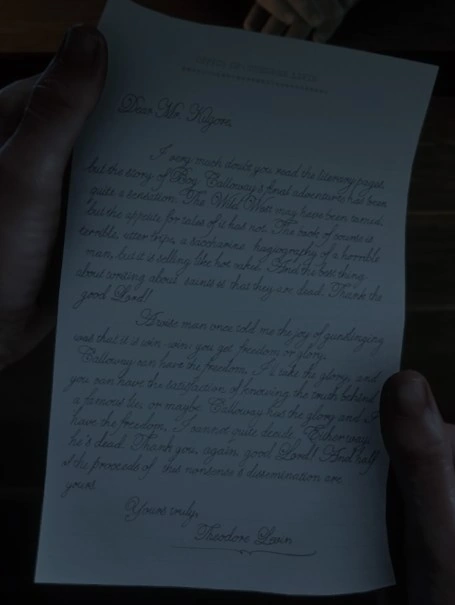 Dear Mr. Kilgore,
I very much doubt you read the literary pages,
but the story of Boy Calloway's final adventures has been
quite a sensation. The Wild West may have been tamed,
but the appetite for tales of it has not. The book of course is
terrible, utter tripe, a saccharine hagiography of a horrible
man, but it is selling like hot cakes. And the best thing
about writing about saints is that they are dead. Thank the
good Lord!
A wise man once told me the joy of gunslinging
was that it is win-win: you get freedom or glory.
Calloway can have the freedom, I'll take the glory, and
you can have the satisfaction of knowing the truth behind
a famous lie, or maybe Calloway has the glory and I
have the freedom, I cannot quite decide. Either way,
he's dead. Thank you, again, good Lord! And half
of the proceeds of this nonsense's dissemination are
yours.
Yours truly,
Theodore Levin